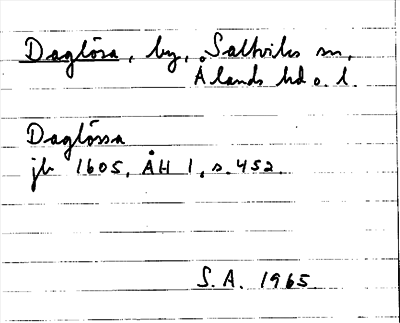 Daglösa, by, Saltviks sn,
Ålands hd o. l.
Daglössa
jb 1605, ÅH 1, s. 452.
S.A. 1965.